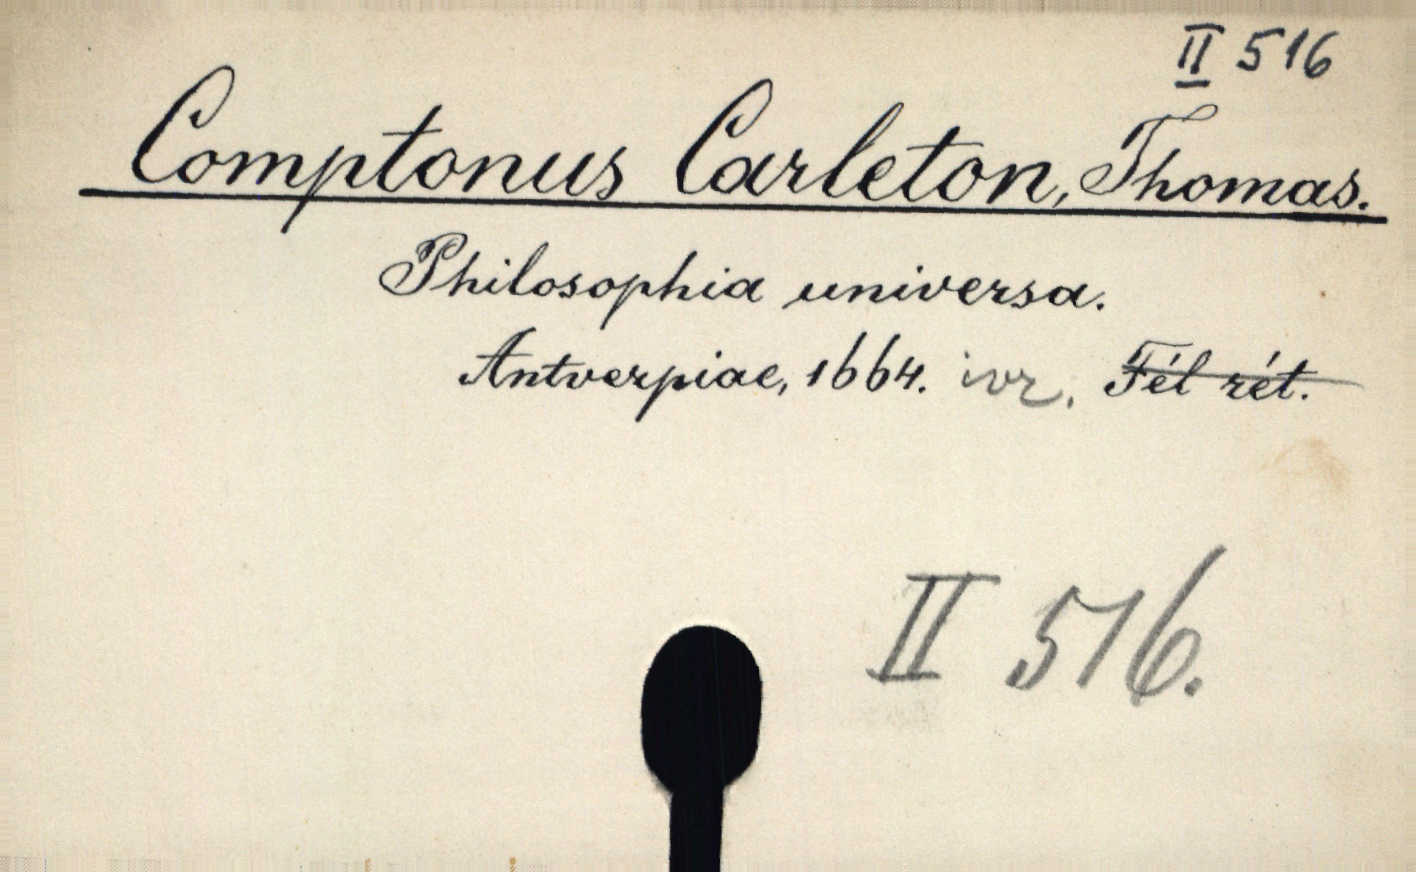 II 516
Comptonus Carleton, Thomas.
Philosophia universa.
Antverpiae, 1664. ivr. Fél rét.
II 516.